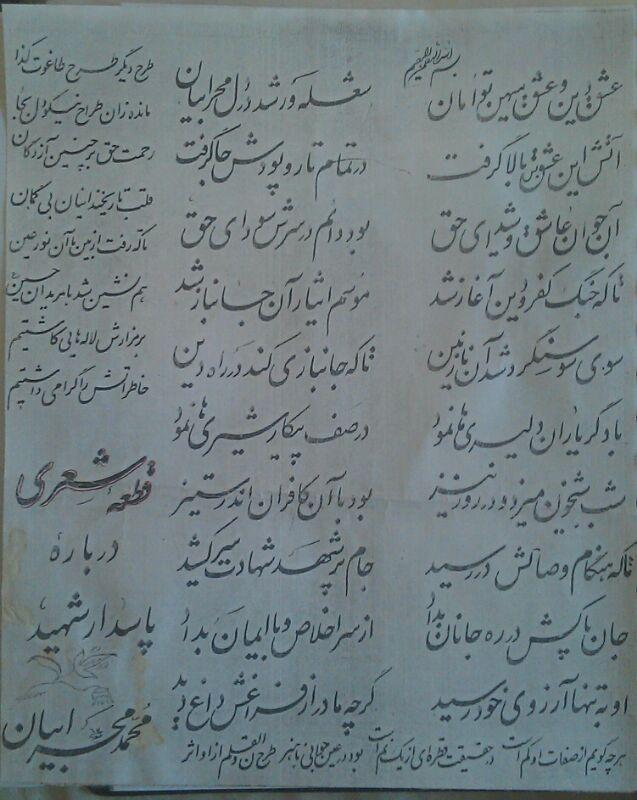 بسم الله الرحمن الرحیم
عشق دین و عشق میهن توامان
شعله ور شد در دل محرابیان
آتش این عشق بالا گرفت
در تمام تار و پودش جا گرفت
آن جوان عاشق و شیدای حق
بود دائم در سرش سودای حق
تا که جنگ کفر و دین آغاز شد
موسم ایثار آن جانباز شد
سوی سوسنگرد شد آن نازنین
تا که جانبازی کند در راه دین
با دگر یاران دلیری ها نمود
در صف پیکار شیری ها نمود
شب شبیخون میزد و در روز نیز
بود با آن کافران اندر ستیز
تا که هنگام وصالش در رسید
جام پر شهد شهادت سر کشید
جان پاکش در ره جانان بداد
از سر اخلاص و با ایمان بداد
او به تنها آرزوی خود رسید
گرچه مادر از فراغش داغ دید
هرچه گویم از صفات او کم است
در حقیقت قطره ای از یک نم است
بود در عین جوانی با هنر
طرح ن والقلم از او اثر
طرح دیگر طرح طاغوت گدا
مانده زان طراح نیکو دل بجا
رحمت حق بر چنین آزادگان
قلب تاریخند اینان بی گمان
تا که رفت از بین ما آن نور عین
هم نشین شد با مریدان حسین
بر مزارش لاله هایی کاشتیم
خاطراتش را گرامی داشتیم
قطعه شعری
درباره
پاسدار شهید
محمد محرابیان